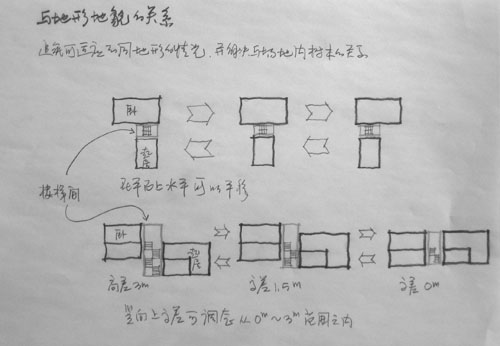 与地形地貌的关系
建筑可适应不同地形的情况，并解决与场地内树木的关系
卧
起居
楼梯间
在平面上水平可以平移
卧
起居
高差3m
高差1.5m
高差0m
竖向上高差可调整从0m~3m范围之内